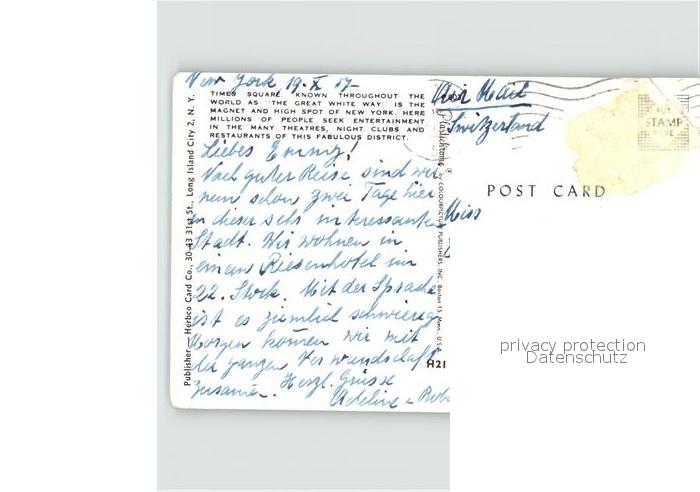 New York 19. X 57
TIMES SQUARE KNOWN THROUGHOUT THE
WORLD AS "THE GREAT WHITE WAY" IS THE
MAGNET AND HIGH SPOT OF NEW YORK. HERE
MILLIONS OF PEOPLE SEEK ENTERTAINMENT
IN THE MANY THEATRES, NIGHT CLUBS AND
RESTAURANTS OF THIS FABULOUS DISTRICT.
Liebes Emmy!
Nach guter Reise sind wir
nun schon zwei Tage hier
in dieser sehr interessanten
Stadt. Wir wohnen in
einem Riesenhotel im
22. Stock. Mit der Sprache
ist es ziemlich schwierig
Morgen können wir mit
der ganzen Verwandschaft
zusammen. Herzl. Grüsse
Adeline
Publisher — Herbco Card Co., 30-43 31st St., Long Island City 2, N. Y.
Plastichrome ® by COLOURPICTURE PUBLISHERS, INC. Boston 15, Mass., U.S.A.
H21
Air Mail
Switzerland
STAMP
HERE
POST CARD
Miss
privacy protection
Datenschutz